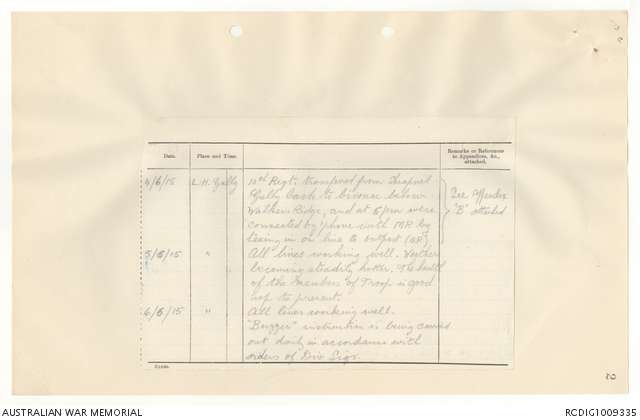 Date.
Place and Time.
Remarks or References to Appendices, &c., attached.
4/6/15 L.H. Gully 10th Regt. transferred from Shrapnel
Gully back to bivouac below
Walkers Ridge, and at 5 pm were
connected by 'phone with MR by
teeing in on line to outpost
See Appendix
"B" attached
5/6/15 " All lines working well. Weather
becoming steadily hotter. The health
of the Members of Troop is good
up to present.
6/6/15 " All lines working well.
"Buzzer" instruction is being carried
out daily in accordance with
orders of Div Sigs.
AUSTRALIAN WAR MEMORIAL
RCDIG1009335